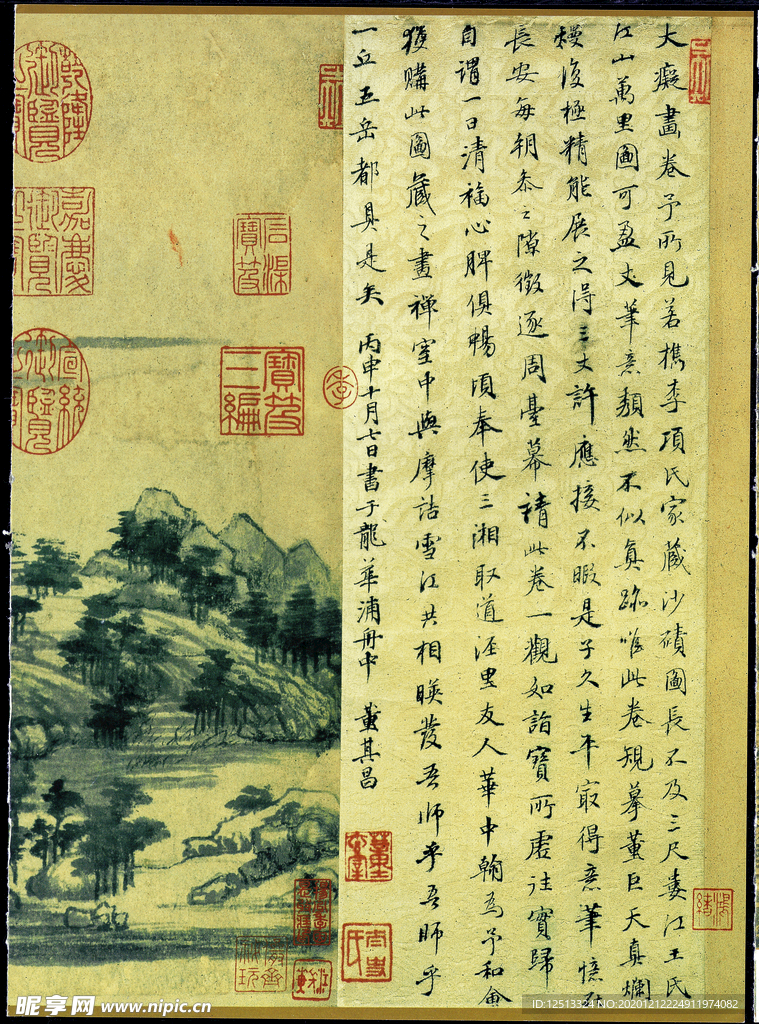 大癡畫卷予所見若檇李項氏家藏沙磧圖長不及三尺婁江王氏
江山萬里圖可盈丈筆意頹然不似真跡唯此卷規摹董巨天真爛
熳復極精能展之得三丈許應接不暇是子久生平最得意筆憶在
長安每朝參之隙徵逐周臺幕請此卷一觀如詣寶所虛往實歸
自謂一日清福心脾俱暢頃奉使三湘取道涇里友人華中翰為予和會
獲購此圖藏之畫禪室中與摩詰雪江共相映發吾師乎吾師乎
一丘五岳都具是矣 丙申十月七日書于龍華浦舟中 董其昌
太史氏
石渠寶笈
寶笈三編
乾隆御覽之寶
嘉慶御覽之寶
宣統御覽之寶
昵享网 www.nipic.cn
ID:12513324 NO:20201212224911974082